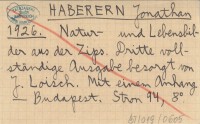 HABERERN Jonathan
1926. Natur- und Lebensbil-
der aus der Zips. Dritte voll-
ständige Ausgabe besorgt von
J. Loisch. Mit einem Anhang
Budapest. Stron 94, 8°